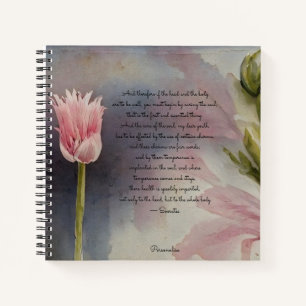 And therefore if the head and the body
are to be well, you must begin by curing the soul;
that is the first and essential thing.
And the cure of the soul, my dear youth,
has to be effected by the use of certain charms,
and these charms are fair words;
and by them temperance is
implanted in the soul, and where
temperance comes and stays,
there health is speedily imparted,
not only to the head, but to the whole body.
— Socrates
Personalise